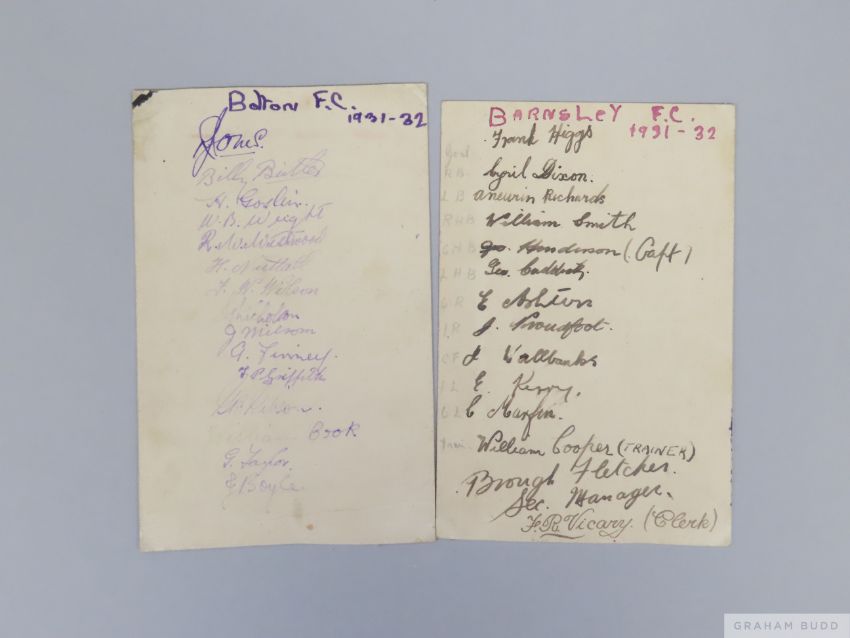 Bolton F.C.
1931-32
Jones.
Billy Butler
H. Goslin.
W.B. Wright
R.W. Westwood
H. Nuttall
F. W. Wilson
J Milsom
G. Finney.
F. P. Griffiths
Cook
G. Taylor.
E Boyle
BARNSLEY F.C.
1931-32
Frank Higgs
RB Cyril Dixon.
LB Aneurin Richards
RHB William Smith
CHB Henderson (Capt)
LHB Geo. Caddick,
OR E Ashton
IR J. Proudfoot.
CF J Wallbanks
IL E. Kerry.
OL C Martin.
William Cooper (TRAINER)
Brough Fletcher.
Sec. Manager.
F.R. Vicary. (Clerk)
GRAHAM BUDD